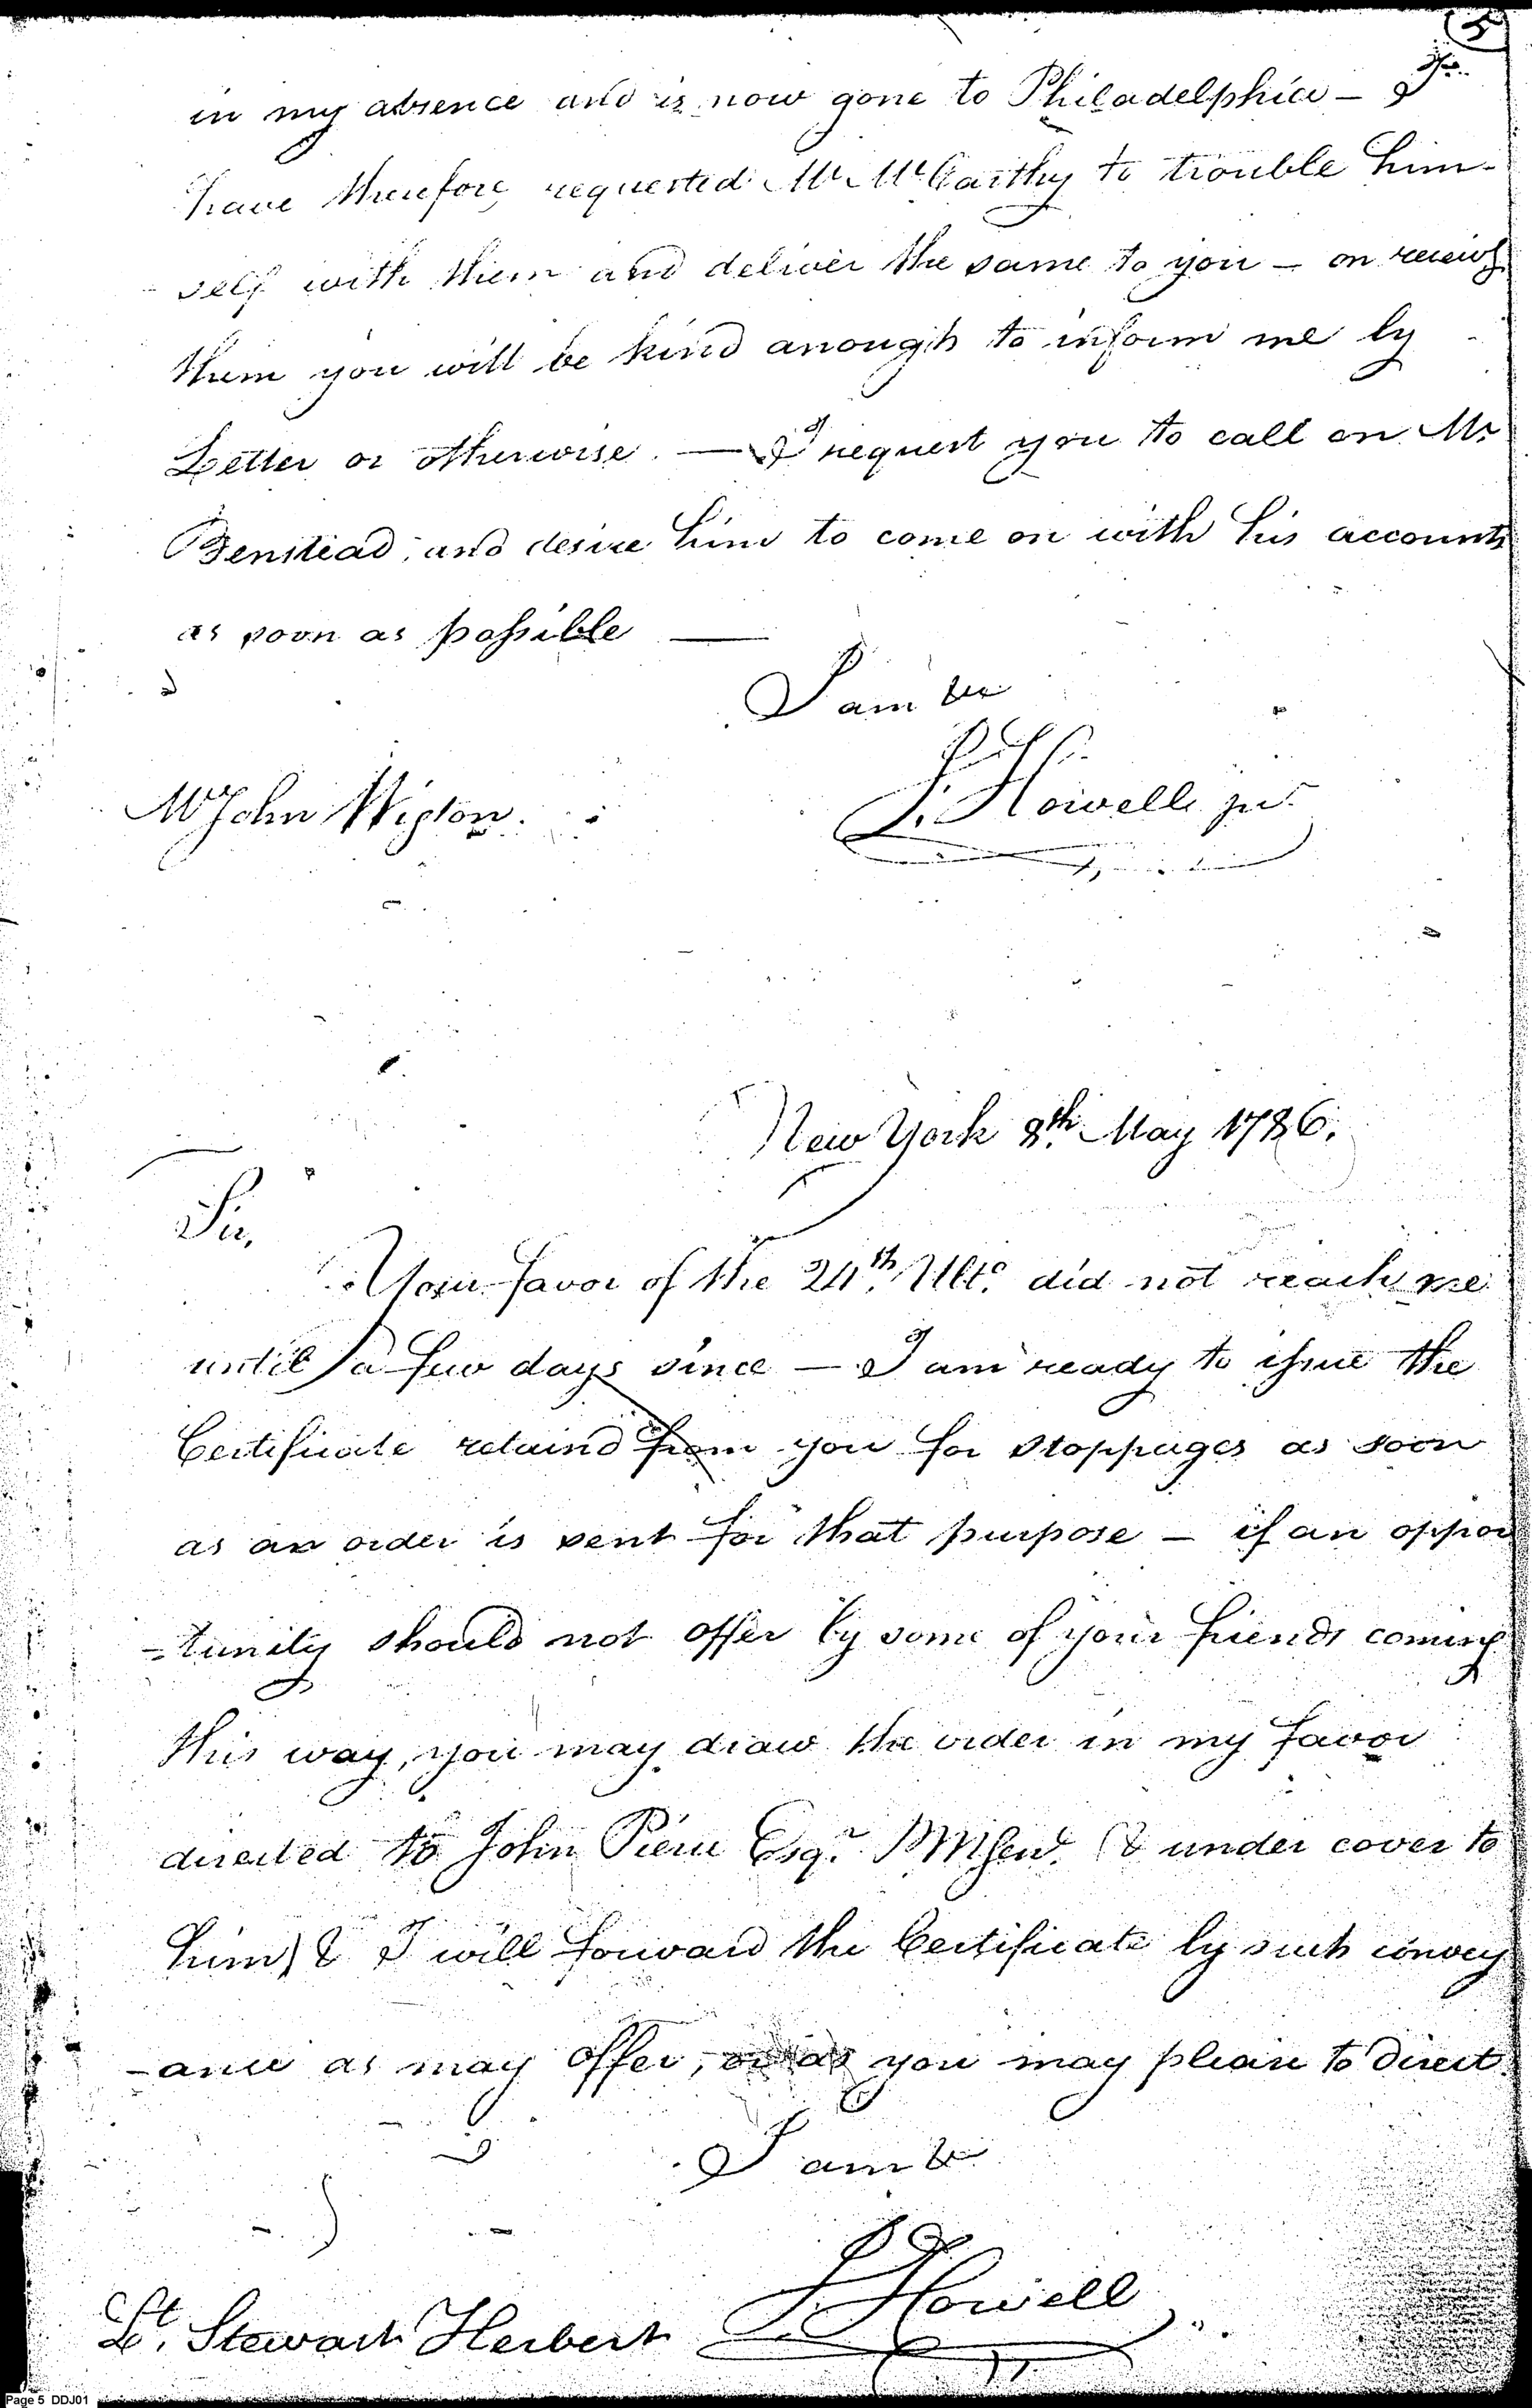 5
in my absence and is now gone to Philadelphia — I
have therefore requested Mr McCarthy to trouble him-
self with them and deliver the same to you — on receivg
them you will be kind anough to inform me by
Letter or otherwise. — I request you to call on Mr
Benstead, and desire him to come on with his accounts
as soon as possible —
I am &c
J. Howell junr
Mr John Wigton.
New York 8th May 1786.
Sir,
Your favor of the 24th Ulto. did not reach me
until a few days since — I am ready to issue the
Certificate retaind from you for stoppages as soon
as an order is sent for that purpose — if an oppor
-tunity should not offer by some of your friends coming
this way, you may draw the order in my favor
directed to John Pierce Esqr. PMGen. (& under cover to
him) & I will forward the Certificate by such convey
-ance as may offer, or as you may please to direct.
I am &c
J. Howell
Lt. Stewart Herbert
Page 5 DDJ01